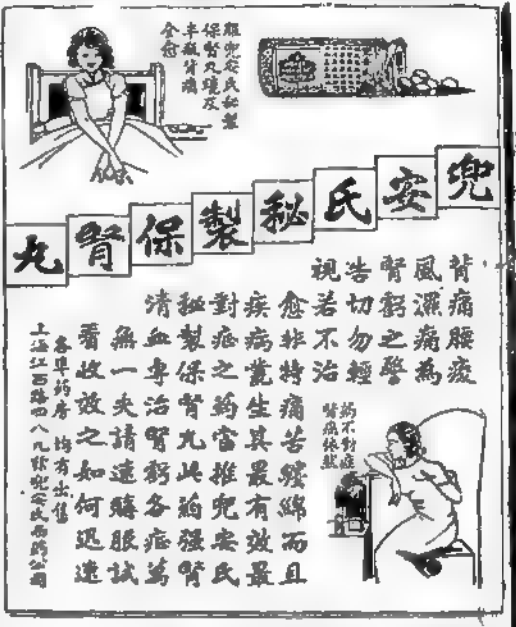 服兜安氏秘製
保腎丸纔及
半瓶背痛
全愈
兜安氏秘製保腎丸
背痛腰痠
風濕痛為
腎虧之警
告切勿輕
視若不治
愈非特痛苦纏綿而且
疾病叢生其最有效最
對症之药當推兜安氏
秘製保腎丸此药强腎
清血專治腎虧各症萬
無一失請速購服試
看收效之如何迅速
药不對症
腎病依然
各埠药房均有出售
上海江西路四八九號兜安氏西药公司